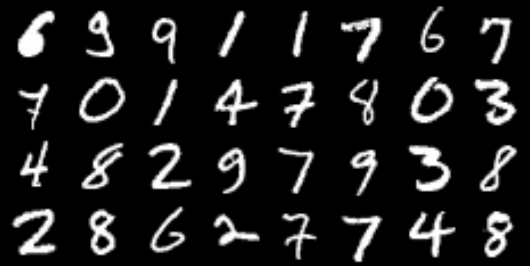 6 9 9 1 1 7 6 7
7 0 1 4 7 8 0 3
4 8 2 9 7 9 3 8
2 8 6 2 7 7 4 8